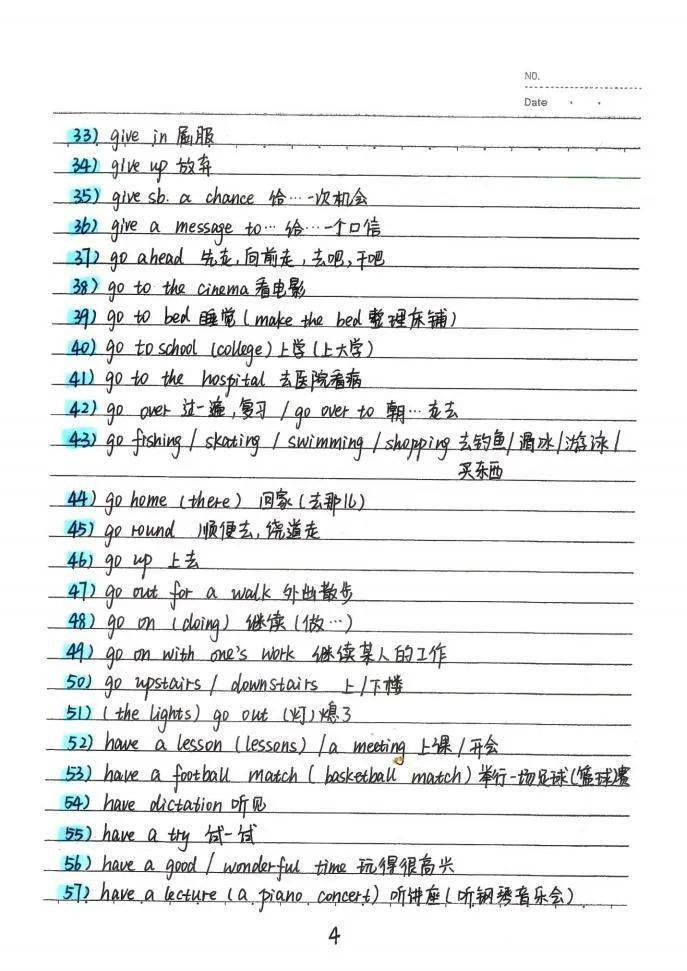 NO.
Date · ·
33) give in 屈服
34) give up 放弃
35) give sb. a chance 给…一次机会
36) give a message to… 给…一个口信
37) go ahead 先走,向前走,去吧,干吧
38) go to the cinema 看电影
39) go to bed 睡觉(make the bed 整理床铺)
40) go to school (college)上学(上大学)
41) go to the hospital 去医院看病
42) go over 过一遍,复习 / go over to 朝…走去
43) go fishing / skating / swimming / shopping 去钓鱼/溜冰/游泳/
买东西
44) go home (there) 回家(去那儿)
45) go round 顺便去,绕道走
46) go up 上去
47) go out for a walk 外出散步
48) go on (doing) 继续(做…)
49) go on with one's work 继续某人的工作
50) go upstairs / downstairs 上/下楼
51) (the lights) go out (灯)熄了
52) have a lesson (lessons) / a meeting 上课/开会
53) have a football match ( basketball match) 举行一场足球(篮球)赛
54) have dictation 听见
55) have a try 试一试
56) have a good / wonderful time 玩得很高兴
57) have a lecture (a piano concert) 听讲座(听钢琴音乐会)
4